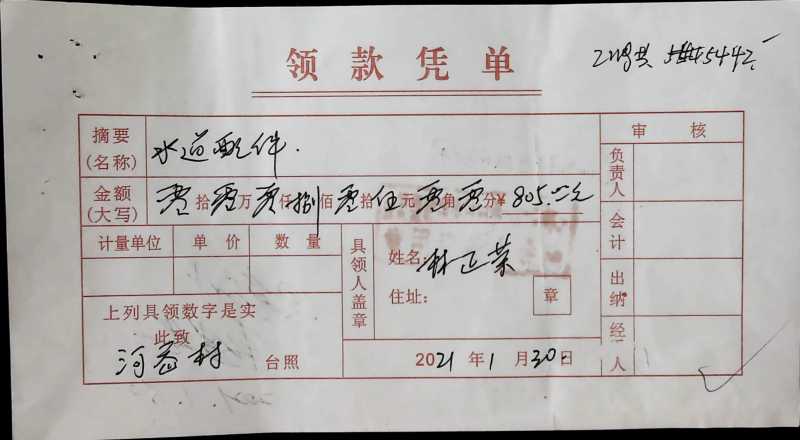 领款凭单
5442
审 核
摘要(名称) 水道配件.
负责人
金额(大写) 零拾零万零仟捌佰零拾伍元零角零分¥805.00元
会计
计量单位 单价 数量
具领人盖章
姓名: 林正荣
住址: 章
出纳
上列具领数字是实
此致
河 村 台照
2021年1月30日
经 人